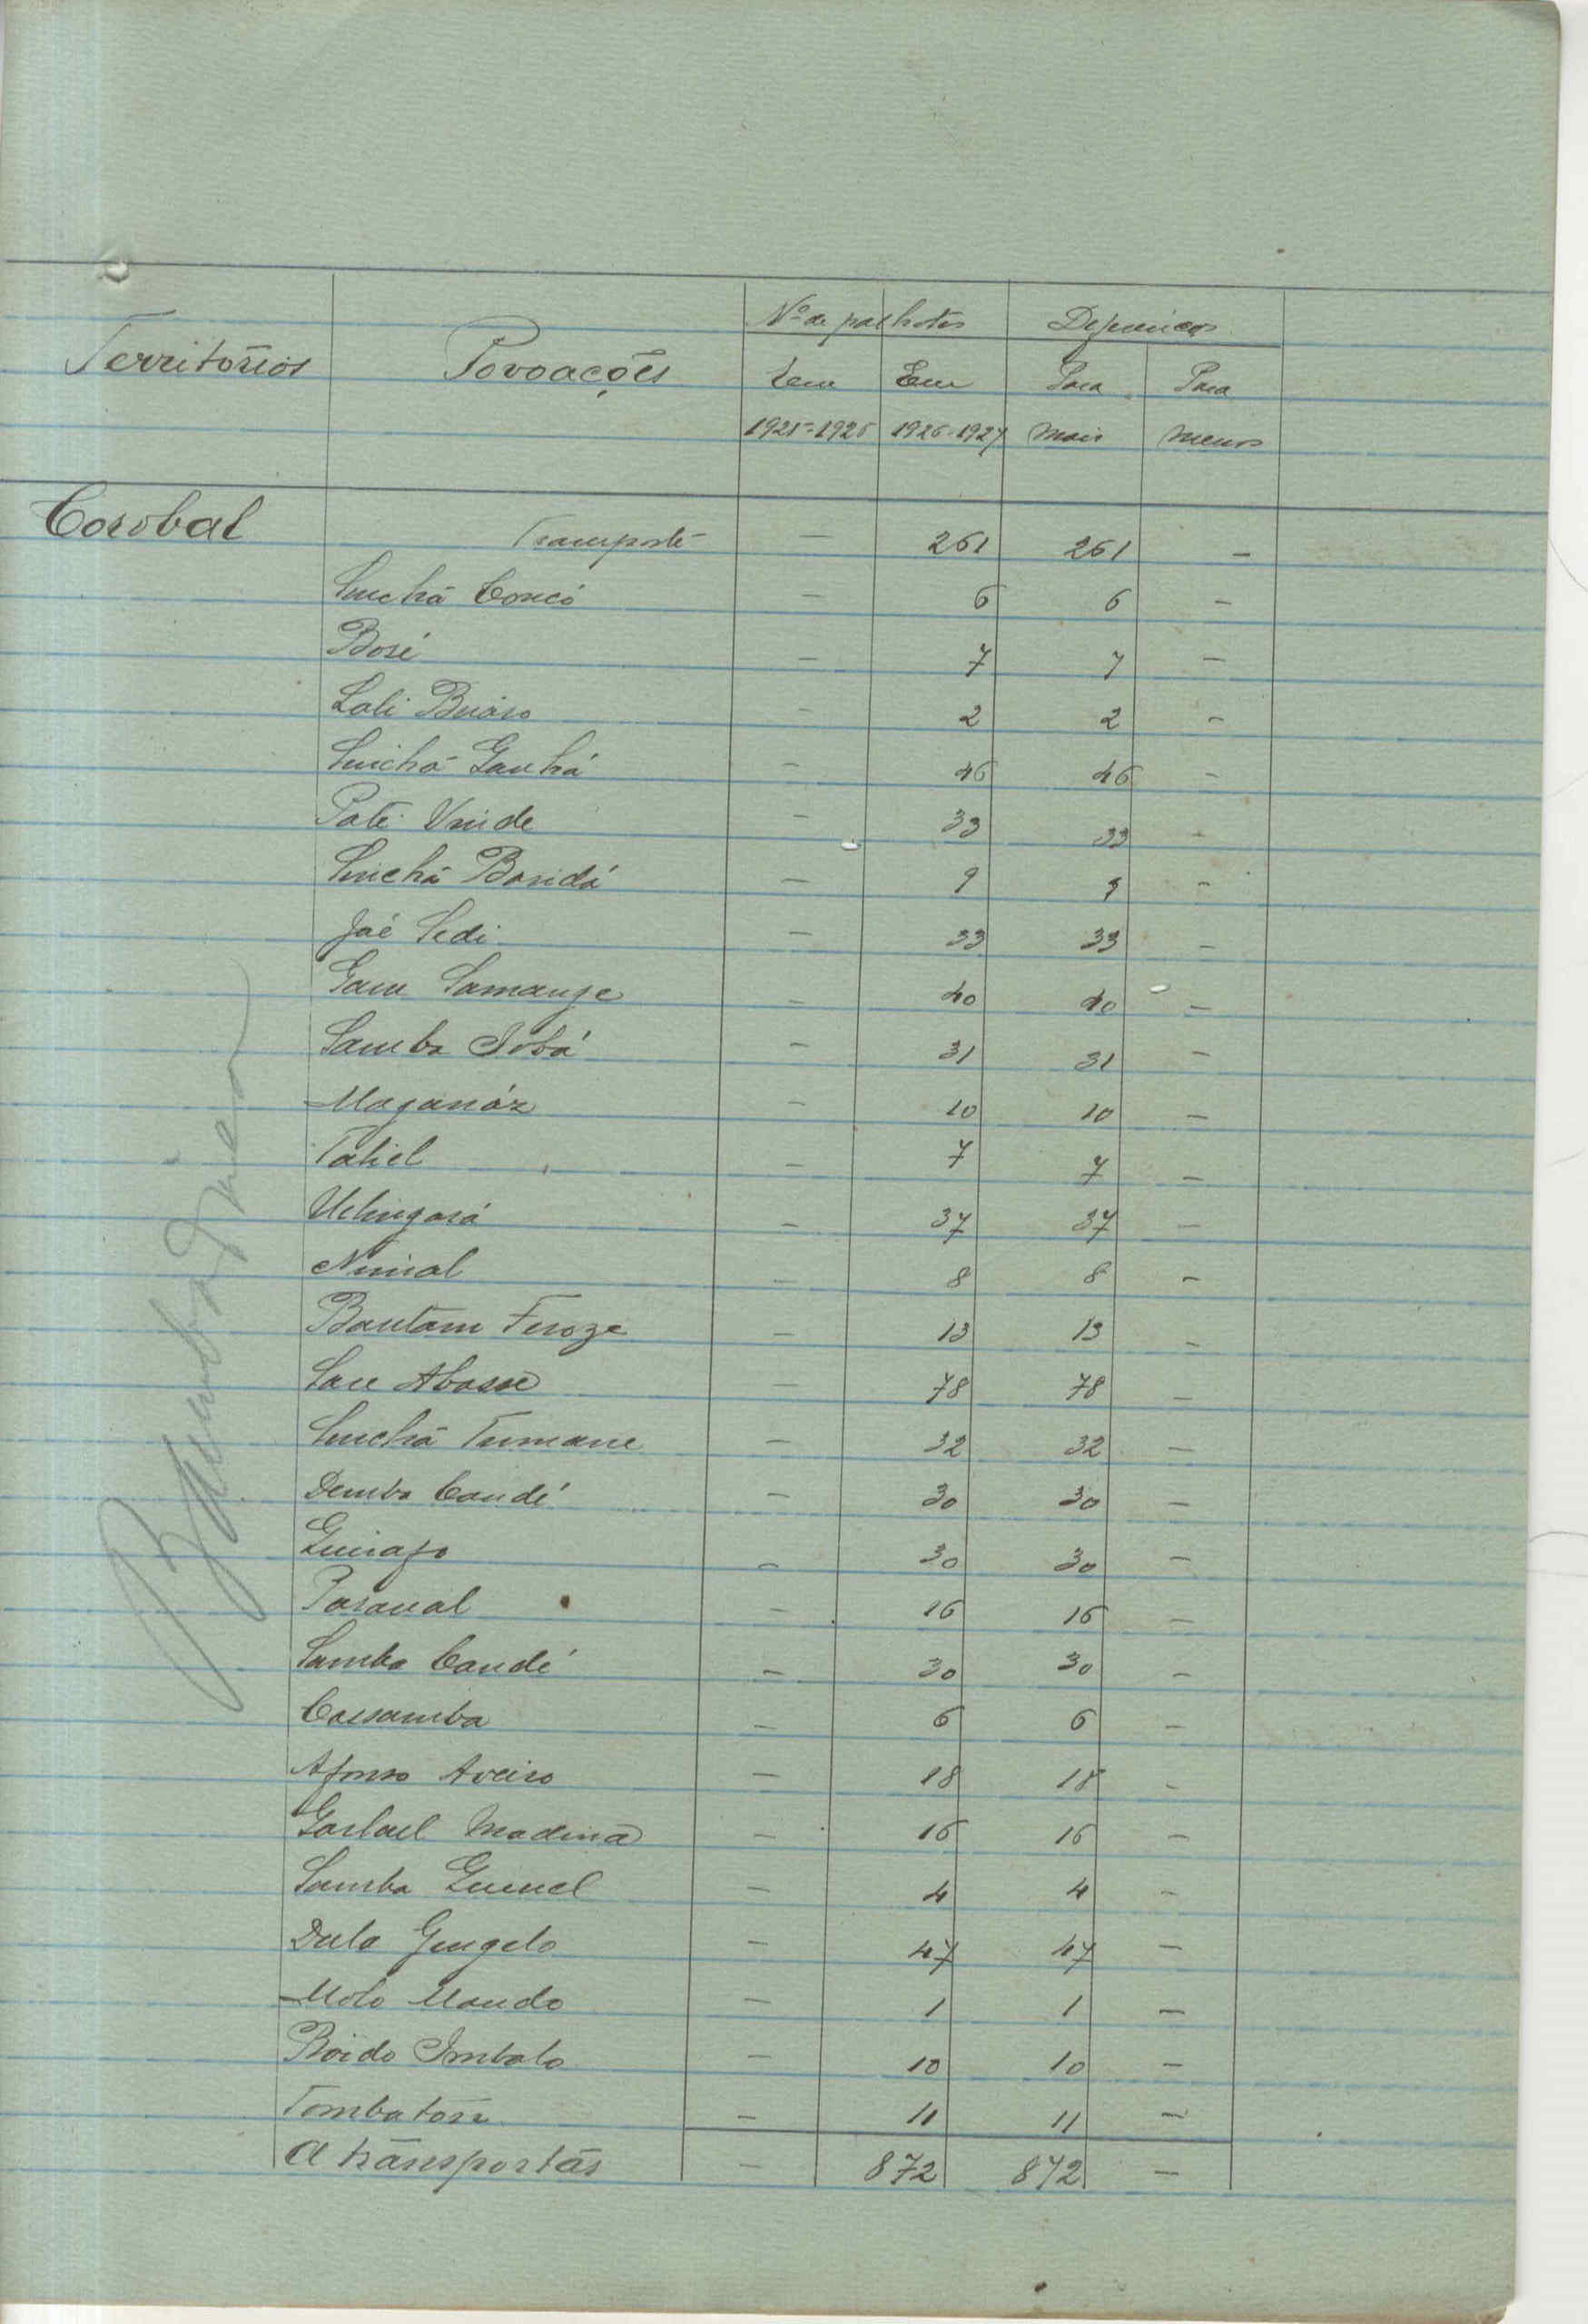 Nº de palhotas Diferenças
Territórios Povoações Em Em Para Para
1925-1926 1926-1927 mais menos
Corobal Transporte - 261 261 -
Sinchã Concó - 6 6 -
Bosé - 7 7 -
Lali Buaro - 2 2 -
Sinchã Ganhá - 46 46 -
Paté Unide - 33 33 -
Sinchã Baridá - 9 9 -
Jaé Sedi - 33 33 -
Gam Samange - 40 40 -
Samba Jobá - 31 31 -
Maganáz - 10 10 -
Taliel - 7 7 -
Uelingará - 37 37 -
Numal - 8 8 -
Bantam Feroze - 13 13 -
Sare Abasse - 78 78 -
Sinchã Tumane - 32 32 -
Demba Candé - 30 30 -
Guirafo - 30 30 -
Paranal - 16 16 -
Samba Candé - 30 30 -
Cassamba - 6 6 -
Afonso Aveiro - 18 18 -
Madina - 16 16 -
Samba Gumel - 4 4 -
Dulo Gengelo - 47 47 -
Molo Mando - 1 1 -
Boido Imbalo - 10 10 -
Tombatora - 11 11 -
A transportar - 872 872 -